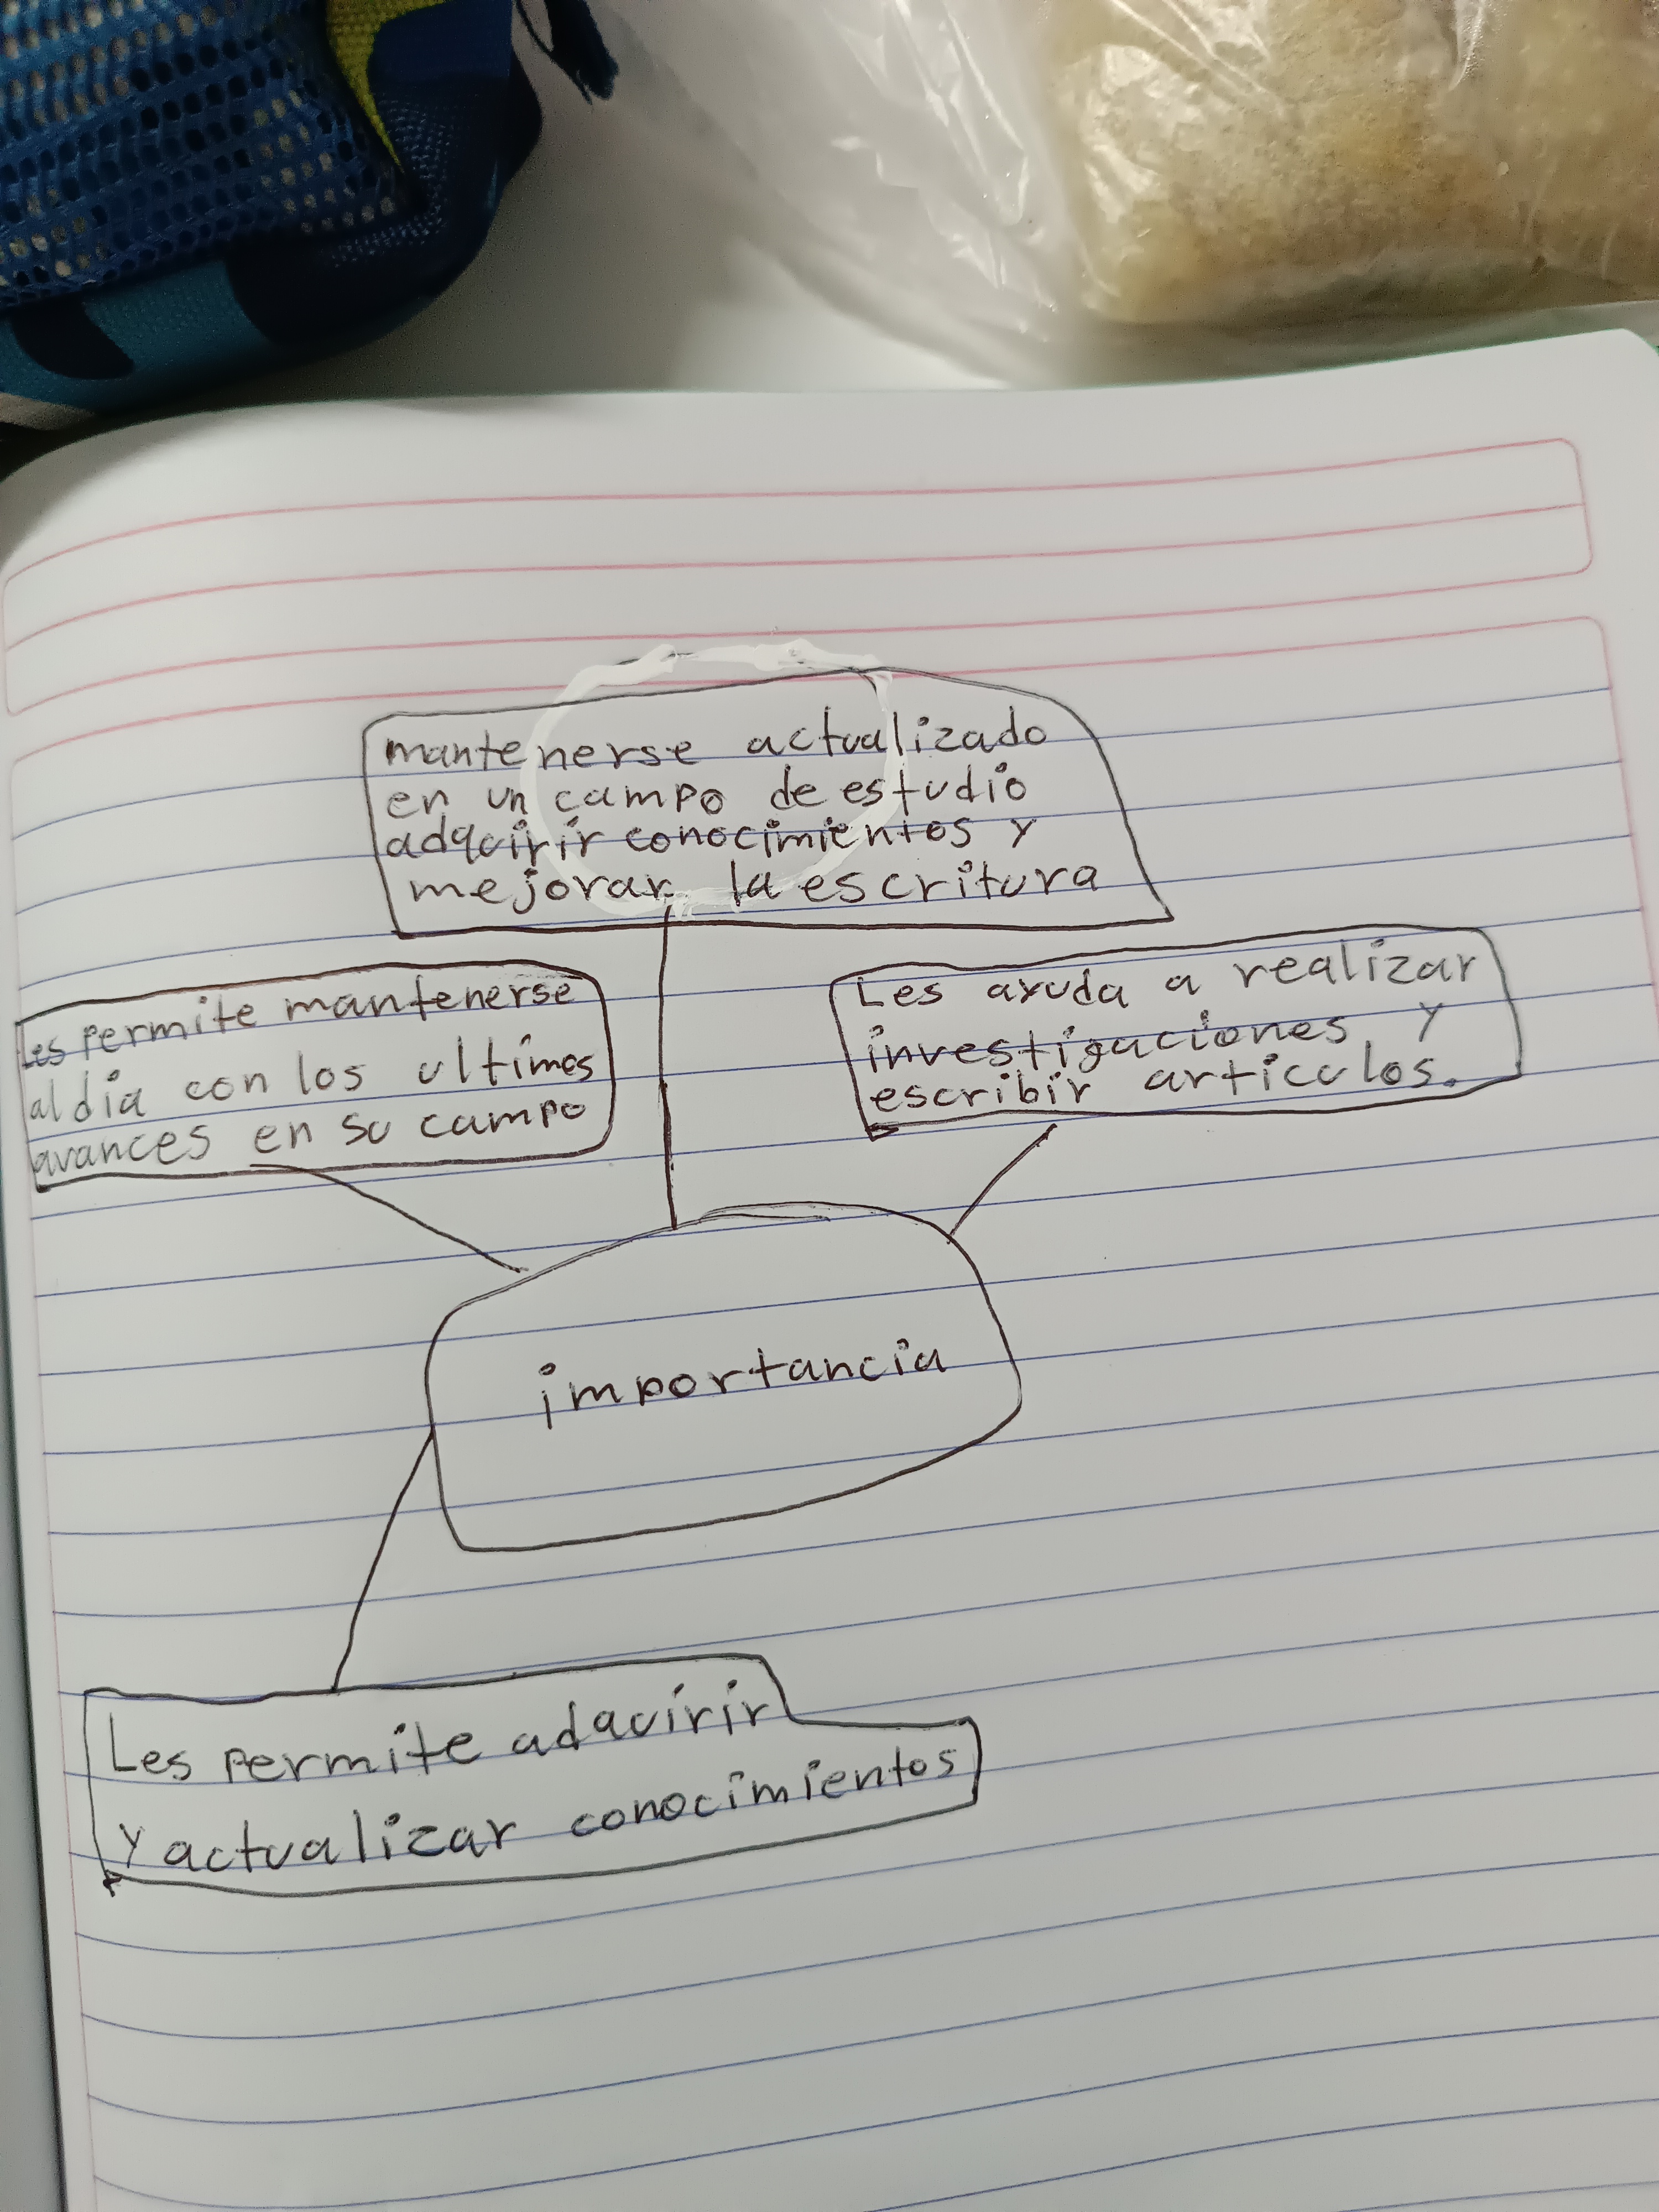 mantenerse actualizado
en un campo de estudio
adquirir conocimientos y
mejorar la escritura
Les permite mantenerse
al dia con los ultimos
avances en su campo
Les ayuda a realizar
investigaciones y
escribir articulos.
importancia
Les permite adquirir
y actualizar conocimientos